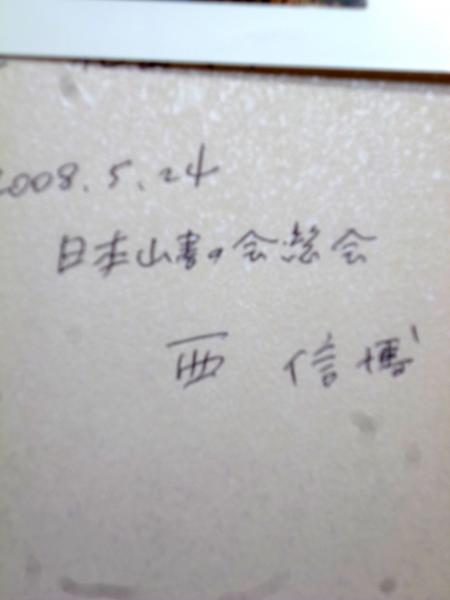 2008.5.24
日本山書の会総会
西 信博